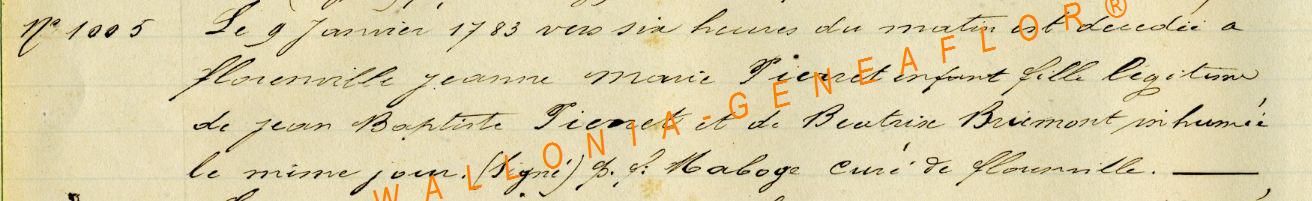 N° 1005 Le 9 Janvier 1783 vers six heures du matin est décédée a
florenville jeanne Marie Pierret enfant fille légitime
de jean Baptiste Pierret et de Beatrix Briemont inhumée
le même jour. (Signé) J. f. Maboge curé de florenville.
WALLONIA-GENEAFLOR®